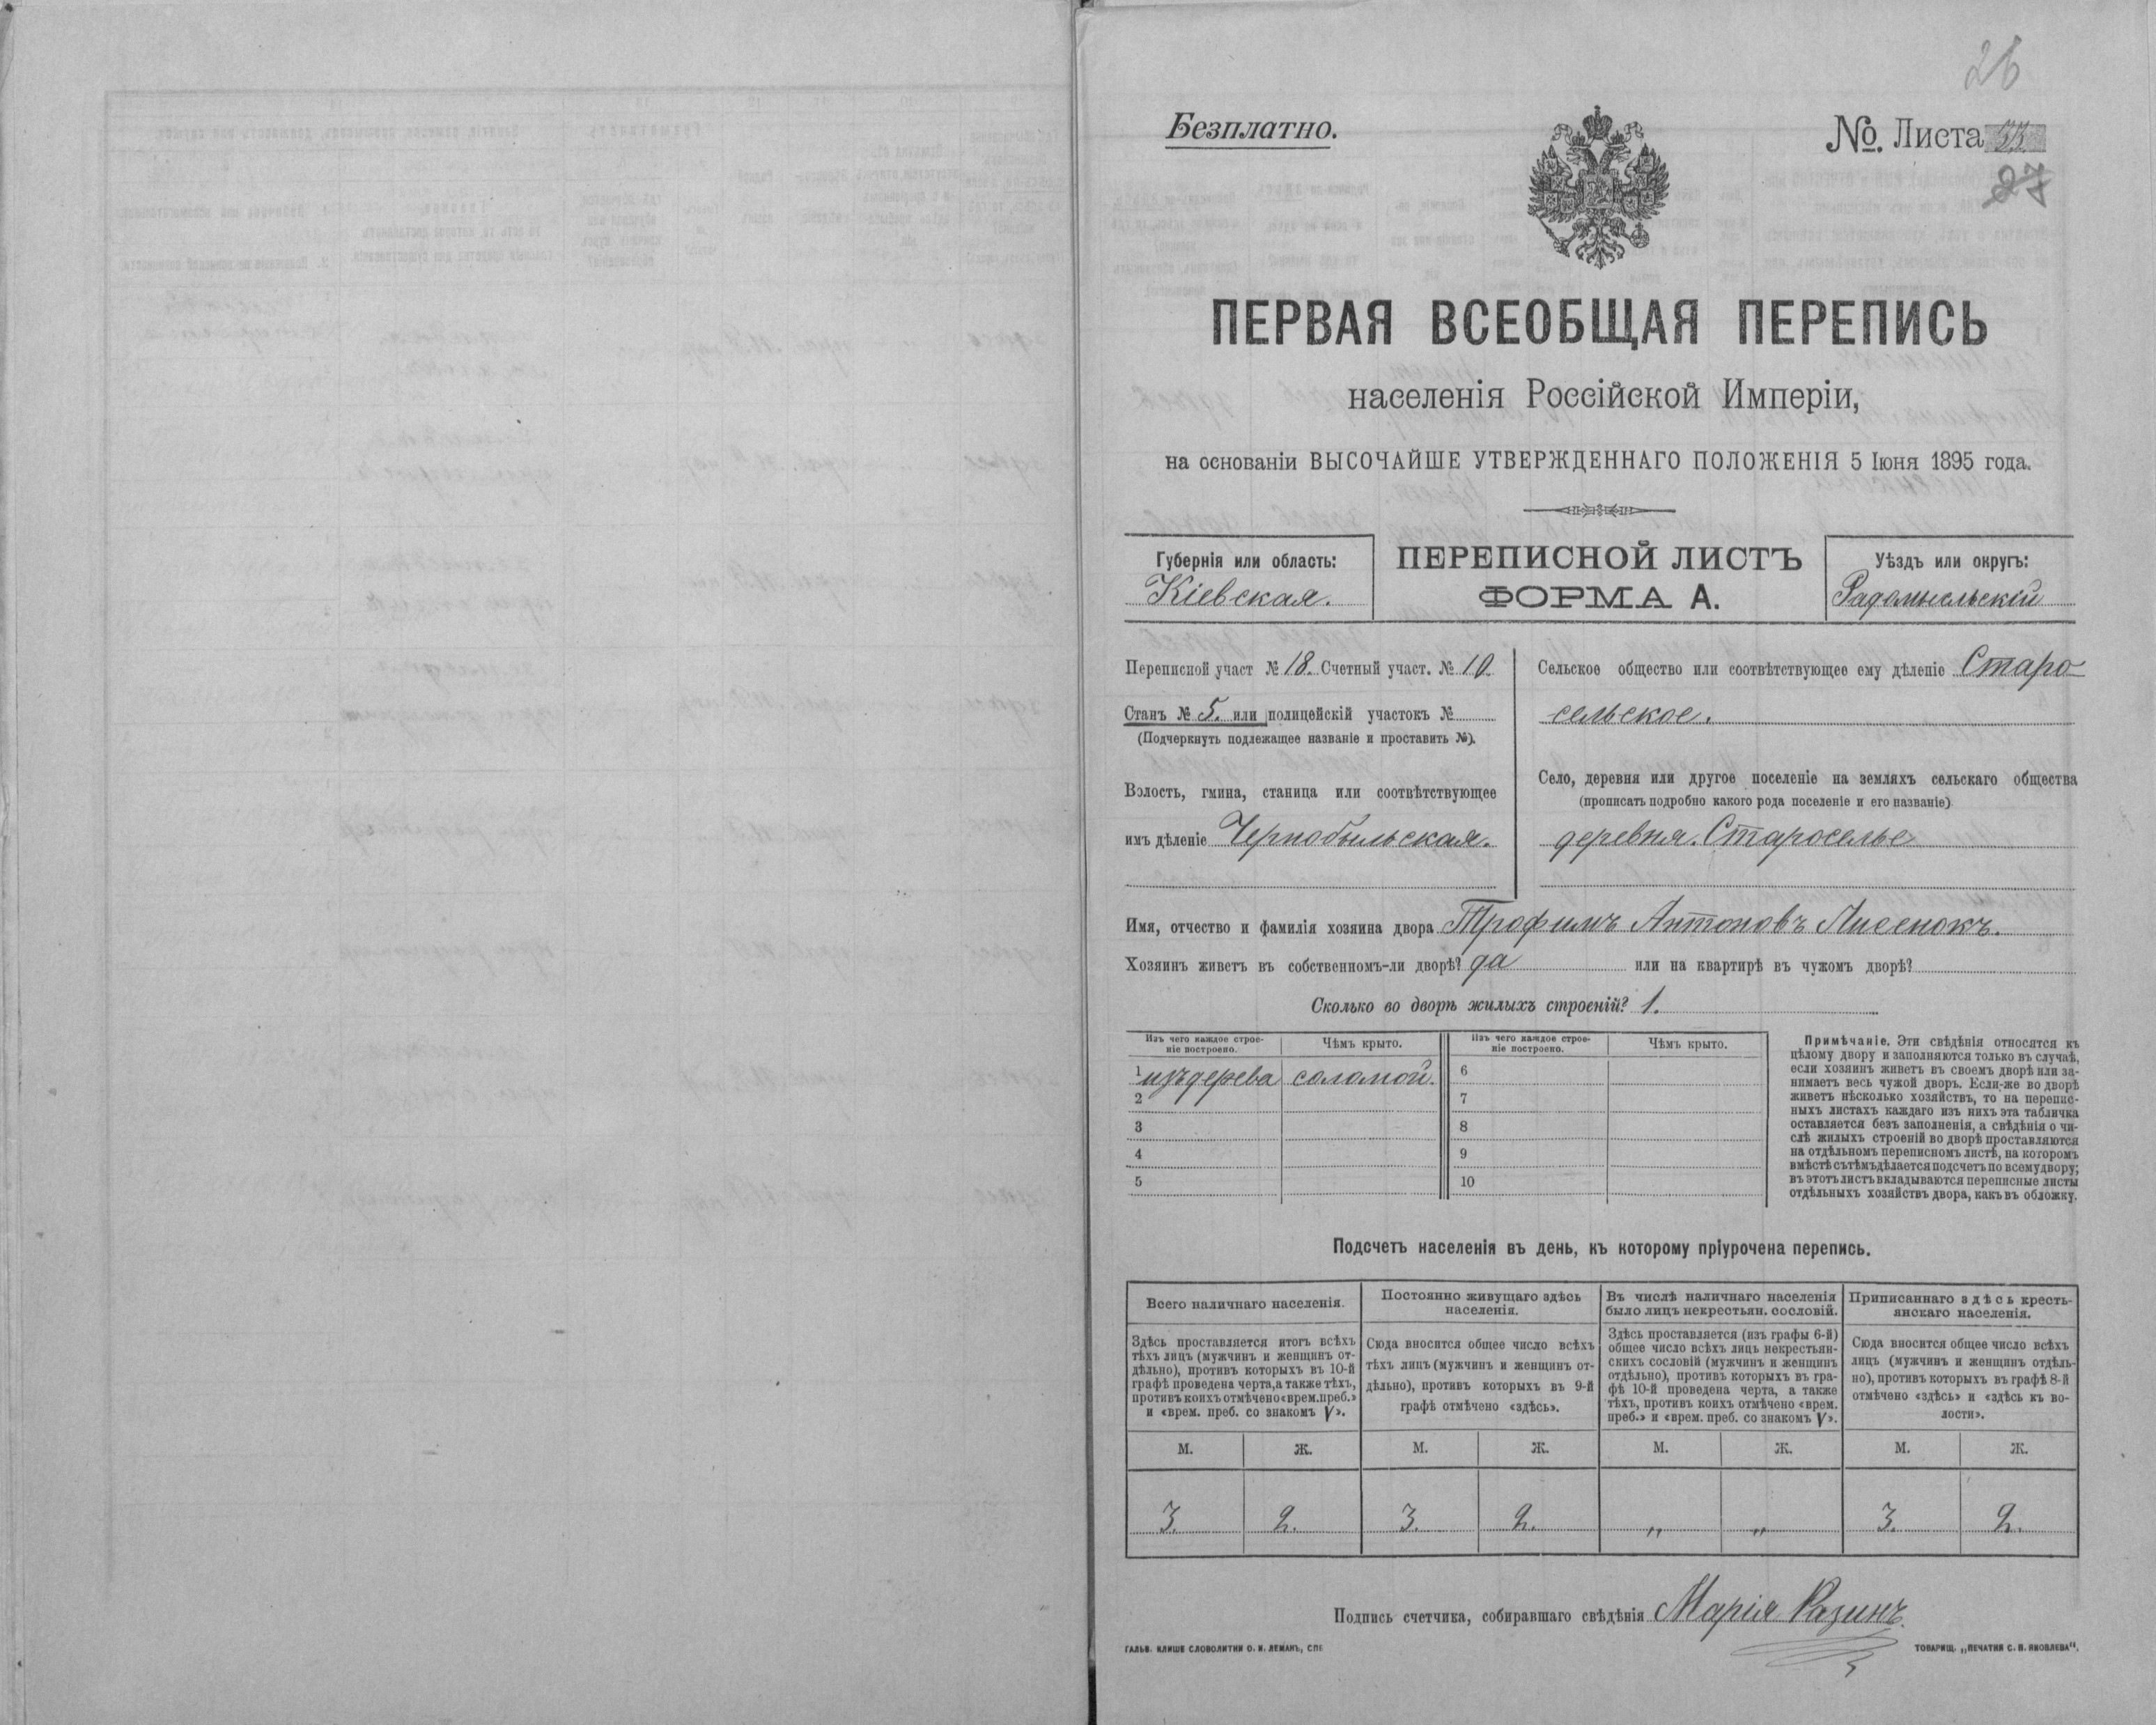 26
Безплатно.
№. Листа
27
ПЕРВАЯ ВСЕОБЩАЯ ПЕРЕПИСЬ
населенія Россійской Имперіи,
на основаніи ВЫСОЧАЙШЕ УТВЕРЖДЕННАГО ПОЛОЖЕНІЯ 5 Іюня 1895 года.
Губернія или область:
Кіевская.
ПЕРЕПИСНОЙ ЛИСТЪ
ФОРМА А.
Уѣздъ или округъ:
Радомысльскій
Переписной участ № 18. Счетный участ. № 10.
Станъ № 5. или полицейскій участокъ №
(Подчеркнуть подлежащее названіе и проставить №).
Волость, гмина, станица или соотвѣтствующее
имъ дѣленіе Чернобыльская.
Сельское общество или соотвѣтствующее ему дѣленіе Старо
сельское.
Село, деревня или другое поселеніе на земляхъ сельскаго общества
(прописать подробно какого рода поселеніе и его названіе)
деревня. Староселье
Имя, отчество и фамилія хозяина двора Трофимъ Антоновъ Лисенокъ.
Хозяинъ живетъ въ собственномъ-ли дворѣ? да или на квартирѣ въ чужомъ дворѣ?
Сколько во дворѣ жилыхъ строеній? 1.
Изъ чего каждое строе-
ніе построено.
Чѣмъ крыто.
Изъ чего каждое строе-
ніе построено.
Чѣмъ крыто.
1 изъ дерева соломой. 6
2 7
3 8
4 9
5 10
Примѣчаніе. Эти свѣдѣнія относятся къ
цѣлому двору и заполняются только въ случаѣ,
если хозяинъ живетъ въ своемъ дворѣ или за-
нимаетъ весь чужой дворъ. Если-же во дворѣ
живетъ нѣсколько хозяйствъ, то на перепис-
ныхъ листахъ каждаго изъ нихъ эта табличка
оставляется безъ заполненія, а свѣдѣнія о чи-
слѣ жилыхъ строеній во дворѣ проставляются
на отдѣльномъ переписномъ листѣ, на которомъ
вмѣстѣ съ тѣмъ дѣлается подсчетъ по всему двору;
въ этотъ листъ вкладываются переписные листы
отдѣльныхъ хозяйствъ двора, какъ въ обложку.
Подсчетъ населенія въ день, къ которому пріурочена перепись.
Всего наличнаго населенія.
Здѣсь проставляется итогъ всѣхъ
тѣхъ лицъ (мужчинъ и женщинъ от-
дѣльно), противъ которыхъ въ 10-й
графѣ проведена черта, а также тѣхъ,
противъ коихъ отмѣчено «врем. преб.»
и «врем. преб. со знакомъ V».
Постоянно живущаго здѣсь
населенія.
Сюда вносится общее число всѣхъ
тѣхъ лицъ (мужчинъ и женщинъ от-
дѣльно), противъ которыхъ въ 9-й
графѣ отмѣчено «здѣсь».
Въ числѣ наличнаго населенія
было лицъ некрестьян. сословій.
Здѣсь проставляется (изъ графы 6-й)
общее число всѣхъ лицъ некрестьян-
скихъ сословій (мужчинъ и женщинъ
отдѣльно), противъ которыхъ въ гра-
фѣ 10-й проведена черта, а также
тѣхъ, противъ коихъ отмѣчено «врем.
преб.» и «врем. преб. со знакомъ V».
Приписаннаго здѣсь кресть-
янскаго населенія.
Сюда вносится общее число всѣхъ
лицъ (мужчинъ и женщинъ отдѣль-
но), противъ которыхъ въ графѣ 8-й
отмѣчено «здѣсь» и «здѣсь къ во-
лости».
М. Ж. М. Ж. М. Ж. М. Ж.
3. 2. 3. 2. „ „ 3. 2.
Подпись счетчика, собиравшаго свѣдѣнія Марія Разинъ.
ГАЛЬВ. КЛИШЕ СЛОВОЛИТНИ О. И. ЛЕМАНЪ, СПБ.
ТОВАРИЩ. „ПЕЧАТНЯ С. П. ЯКОВЛЕВА".